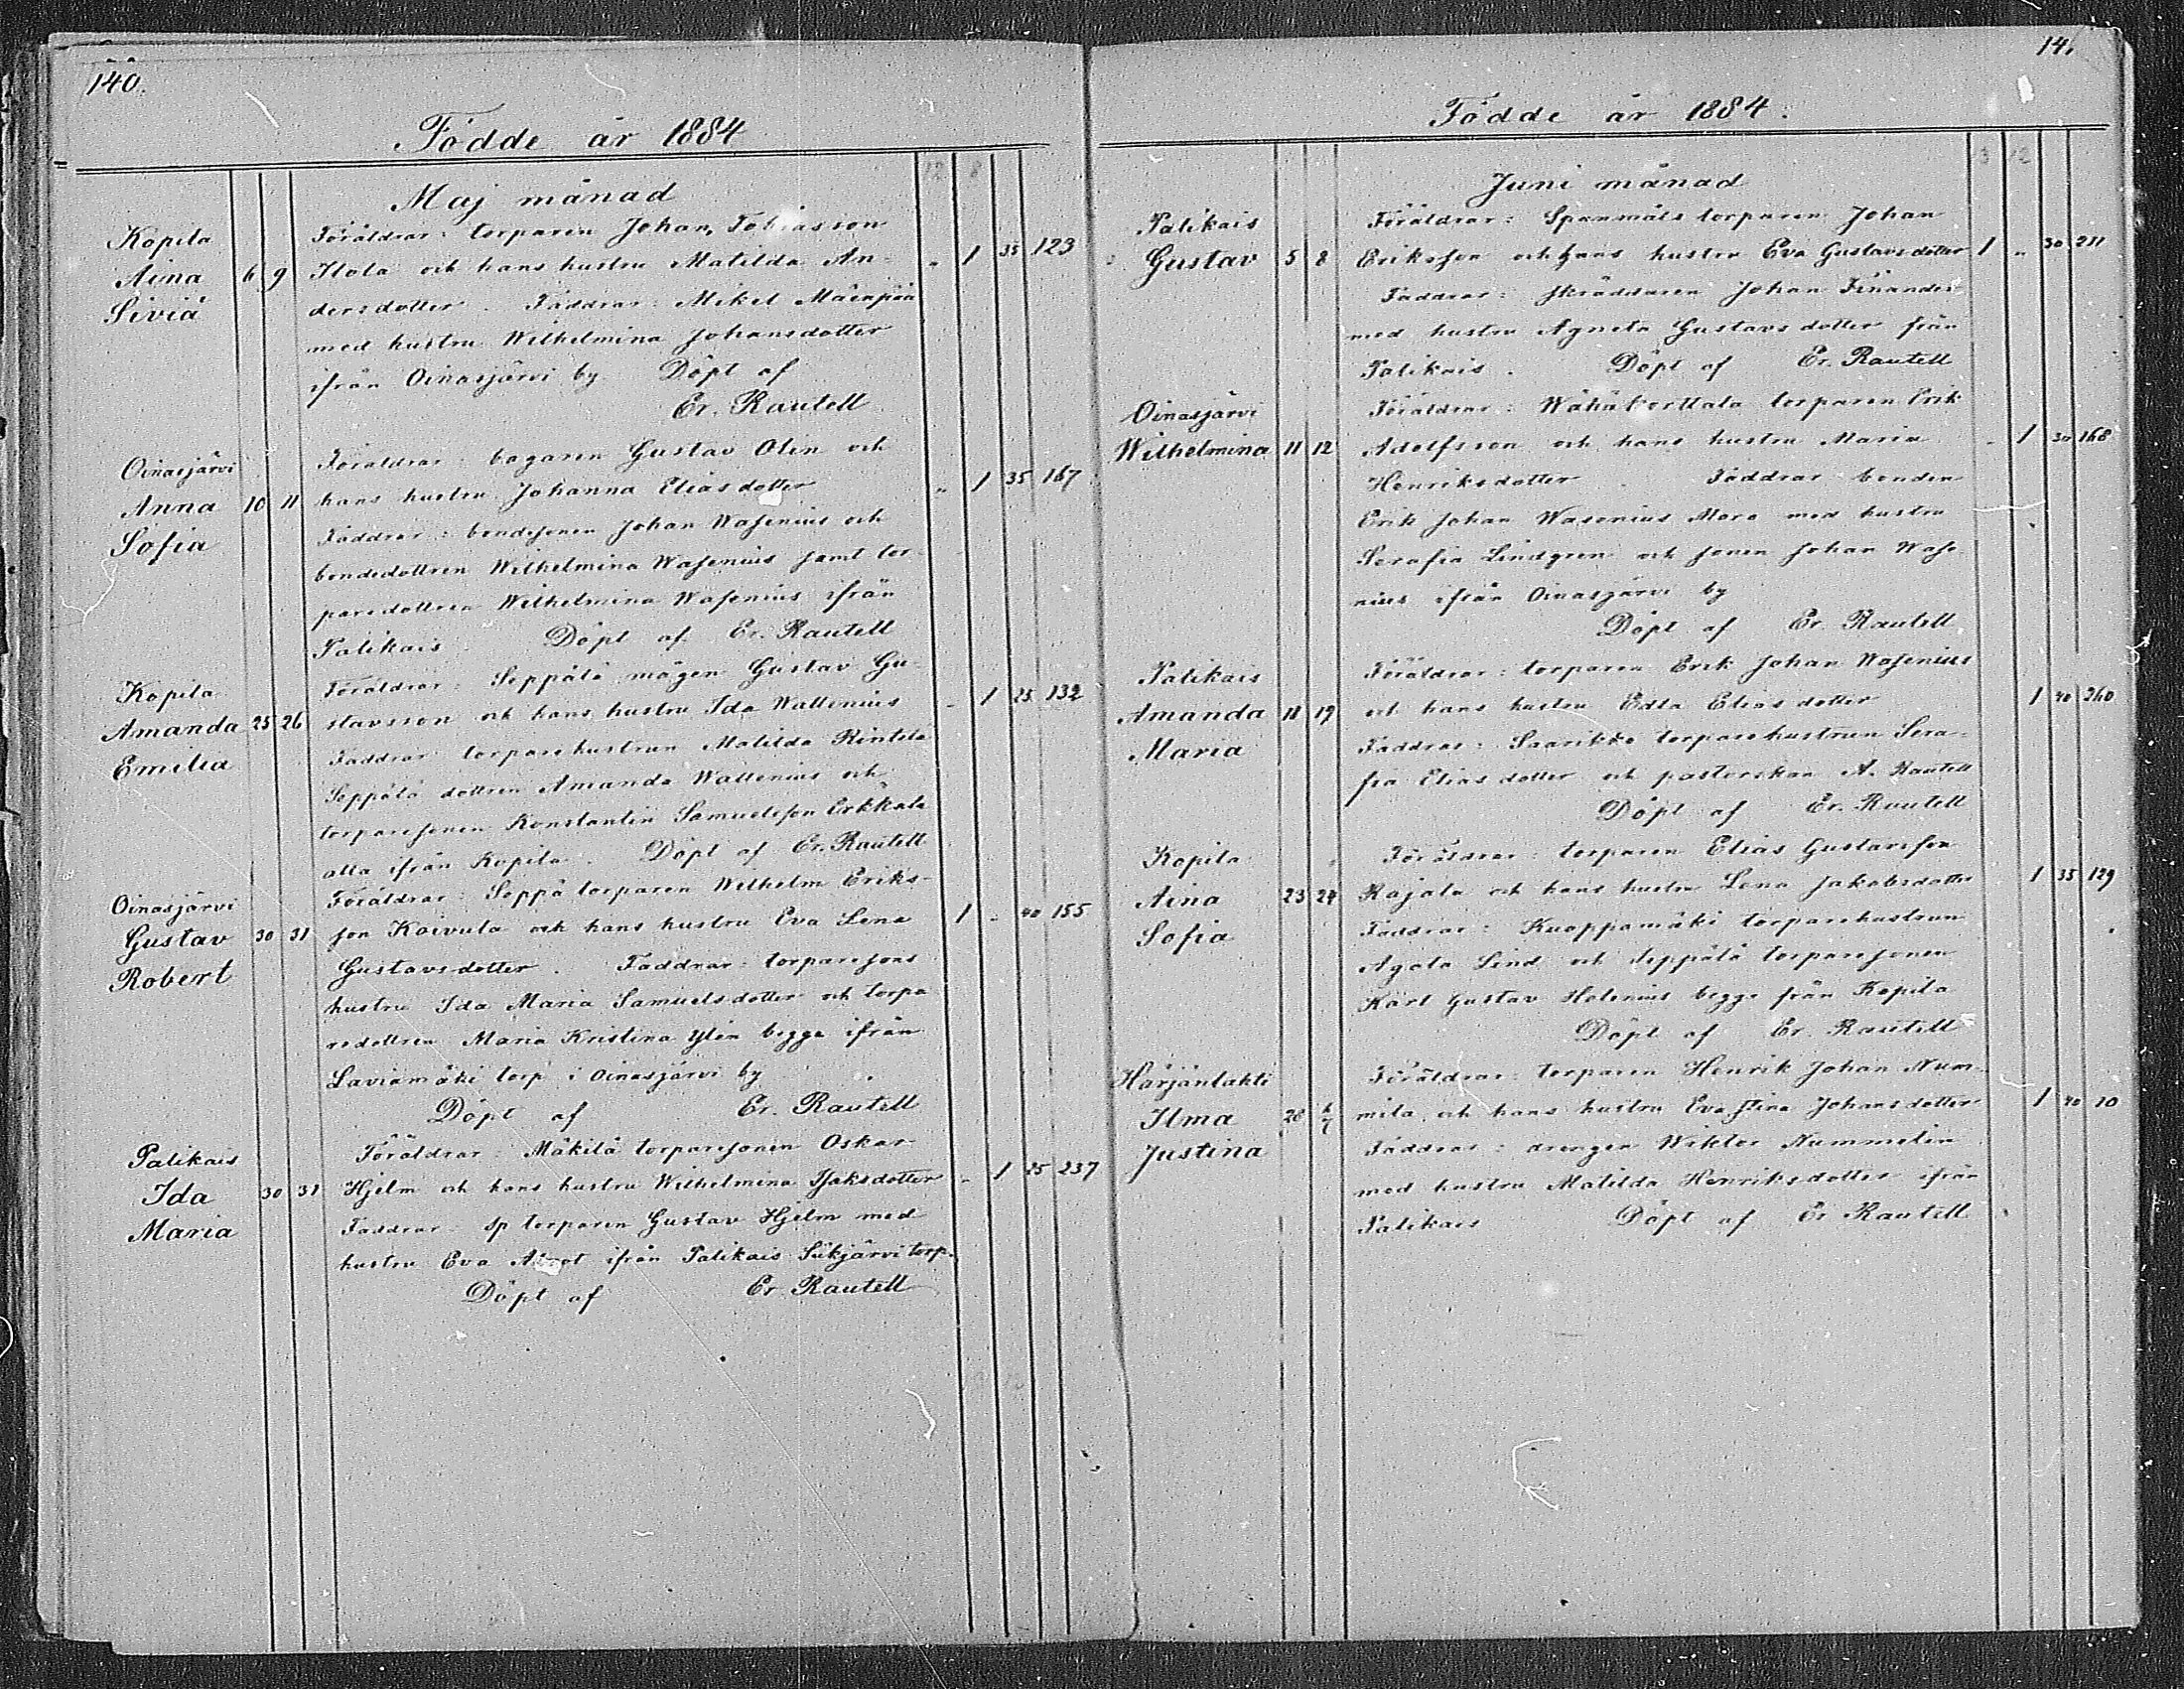 140.
Födde år 1884
12 8
Maj månad
Kopila
Aina 6 9
Siviä
Föräldrar: torparen Johan Tobiasson
Ilola och hans hustru Matilda An- „ 1 35 123
dersdotter. Faddrar: Mikel Mäenpää
med hustru Wilhelmina Johansdotter
ifrån Oinasjärvi by. Döpt af
Er. Rautell
Oinasjärvi
Anna 10 11
Sofia
Föräldrar: bagaren Gustav Olin och
hans hustru Johanna Eliasdotter „ 1 35 167
Faddrar: bondesonen Johan Wasenius och
bondedottren Wilhelmina Wasenius samt tor-
paredottren Wilhelmina Wasenius ifrån
Palikais. Döpt af Er. Rautell
Kopila
Amanda 25 26
Emilia
Föräldrar: Seppälä mågen Gustav Gu-
stavsson och hans hustru Ida Wallenius - 1 25 132
Faddrar torparehustrun Matilda Rintela
Seppälä dottren Amanda Wallenius och
torparesonen Konstantin Samuelsson Erkkala
alla ifrån Kopila. Döpt af Er. Rautell
Oinasjärvi
Gustav 30 31
Robert
Föräldrar: Seppä torparen Wilhelm Eriks-
son Koivula och hans hustru Eva Lena 1 - 40 155
Gustavsdotter. Faddrar: torparesons
hustru Ida Maria Samuelsdotter och torpa
redottren Maria Kristina Ylén begge ifrån
Laviamäki torp i Oinasjärvi by
Döpt af Er. Rautell
Palikais
Ida 30 31
Maria
Föräldrar: Mäkilä torparesonen Oskar
Hjelm och hans hustru Wilhelmina Isaksdotter - 1 25 237
Faddrar Sp torparen Gustav Hjelm med
hustru Eva ifrån Palikais Siikjärvi torp.
Döpt af Er. Rautell
14.
Födde år 1884.
3 12
Juni månad
Palikais
Gustav 5 8
Föräldrar: Spanmåls torparen Johan
Eriksson och hans hustru Eva Gustavsdotter 1 „ 30 211
Faddrar: skräddaren Johan Finander
med hustru Agneta Gustavsdotter från
Palikais. Döpt af Er. Rautell
Oinasjärvi
Wilhelmina 11 12
Föräldrar: Wähäkorttala torparen Erik
Adolfsson och hans hustru Maria - 1 30 168
Henriksdotter. Faddrar bonden
Erik Johan Wasenius Moro med hustru
Serafia Lindgren och sonen Johan Wase-
nius ifrån Oinasjärvi by
Döpt af Er. Rautell
Palikais
Amanda 18 19
Maria
Föräldrar: torparen Erik Johan Wasenius
och hans hustru Edla Eliasdotter 1 40 260
Faddrar: Saarikko torparehustrun Sera-
fia Eliasdotter och pastorskan A. Rautell
Döpt af Er. Rautell
Kopila
Aina 23 24
Sofia
Föräldrar: torparen Elias Gustavsson
Rajala och hans hustru Lena Jakobsdotter 1 35 129
Faddrar: Kuoppamäki torparehustrun
Agata Lind och Seppälä torparesonen
Karl Gustav Helenius begge från Kopila
Döpt af Er. Rautell
Härjänlahti
Ilma 28 6/7
Justina
Föräldrar: torparen Henrik Johan Num-
mila och hans hustru Eva Stina Johansdotter 1 40 10
Faddrar: drengen Wiktor Nummelin
med hustru Matilda Henriksdotter ifrån
Palikais Döpt af Er Rautell